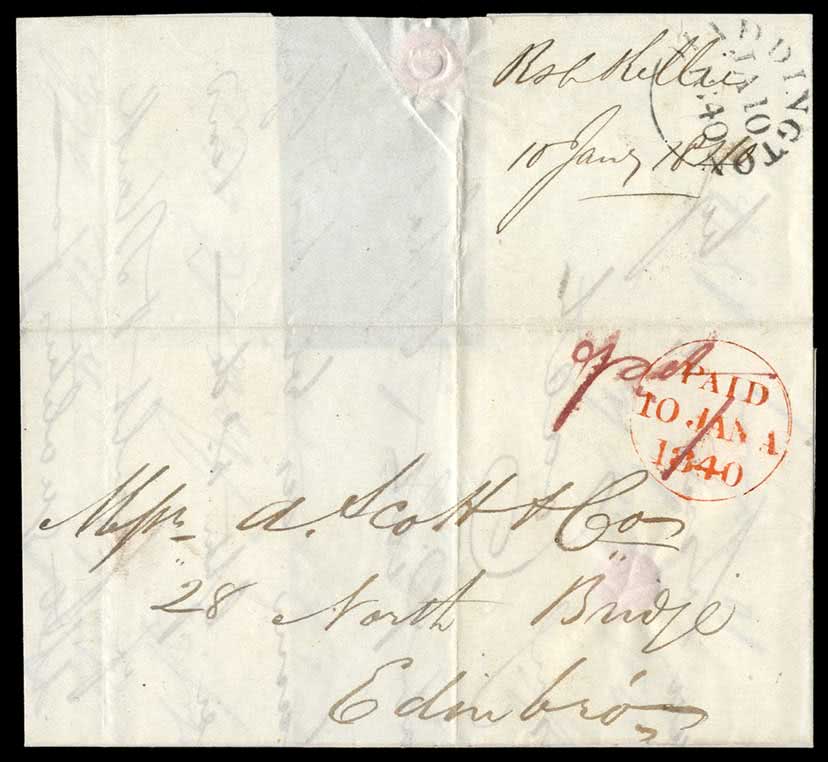 Robt Kellie
10 Jany 1840
HADDINGTON
JA 10
1840
pd 1
PAID
10 JAN A
1840
Messrs A. Scott & Cos
28 North Bridge
Edinbro